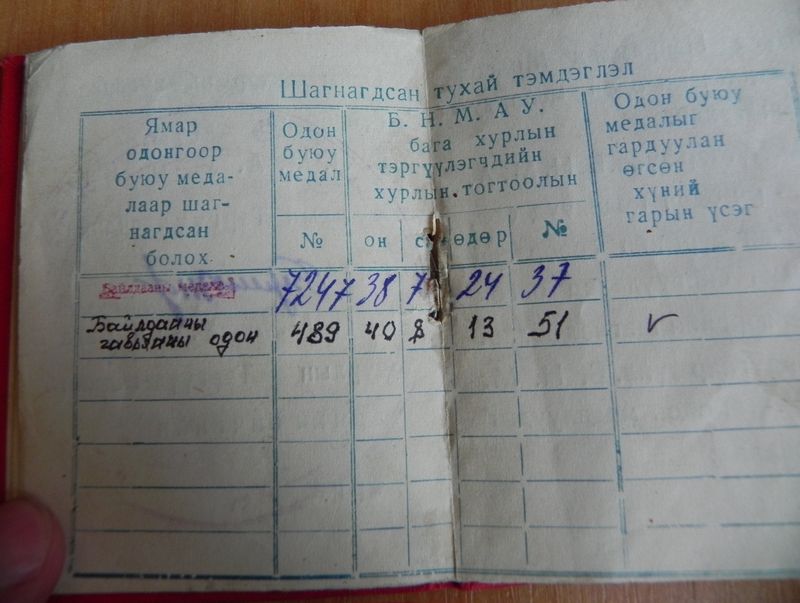 Шагнагдсан тухай тэмдэглэл
Ямар
одонгоор
буюу меда-
лаар шаг-
нагдсан
болох
Одон
буюу
медал
№
Б. Н. М. А У.
бага хурлын
тэргүүлэгчдийн
хурлын тогтоолын
он
өдөр
№
Одон буюу
медалыг
гардуулан
өгсөн
хүний
гарын үсэг
Байлдааны медаль 7247 38 7 24 37
Байлдааны 489 40 8 13 51
гавьяаны одон